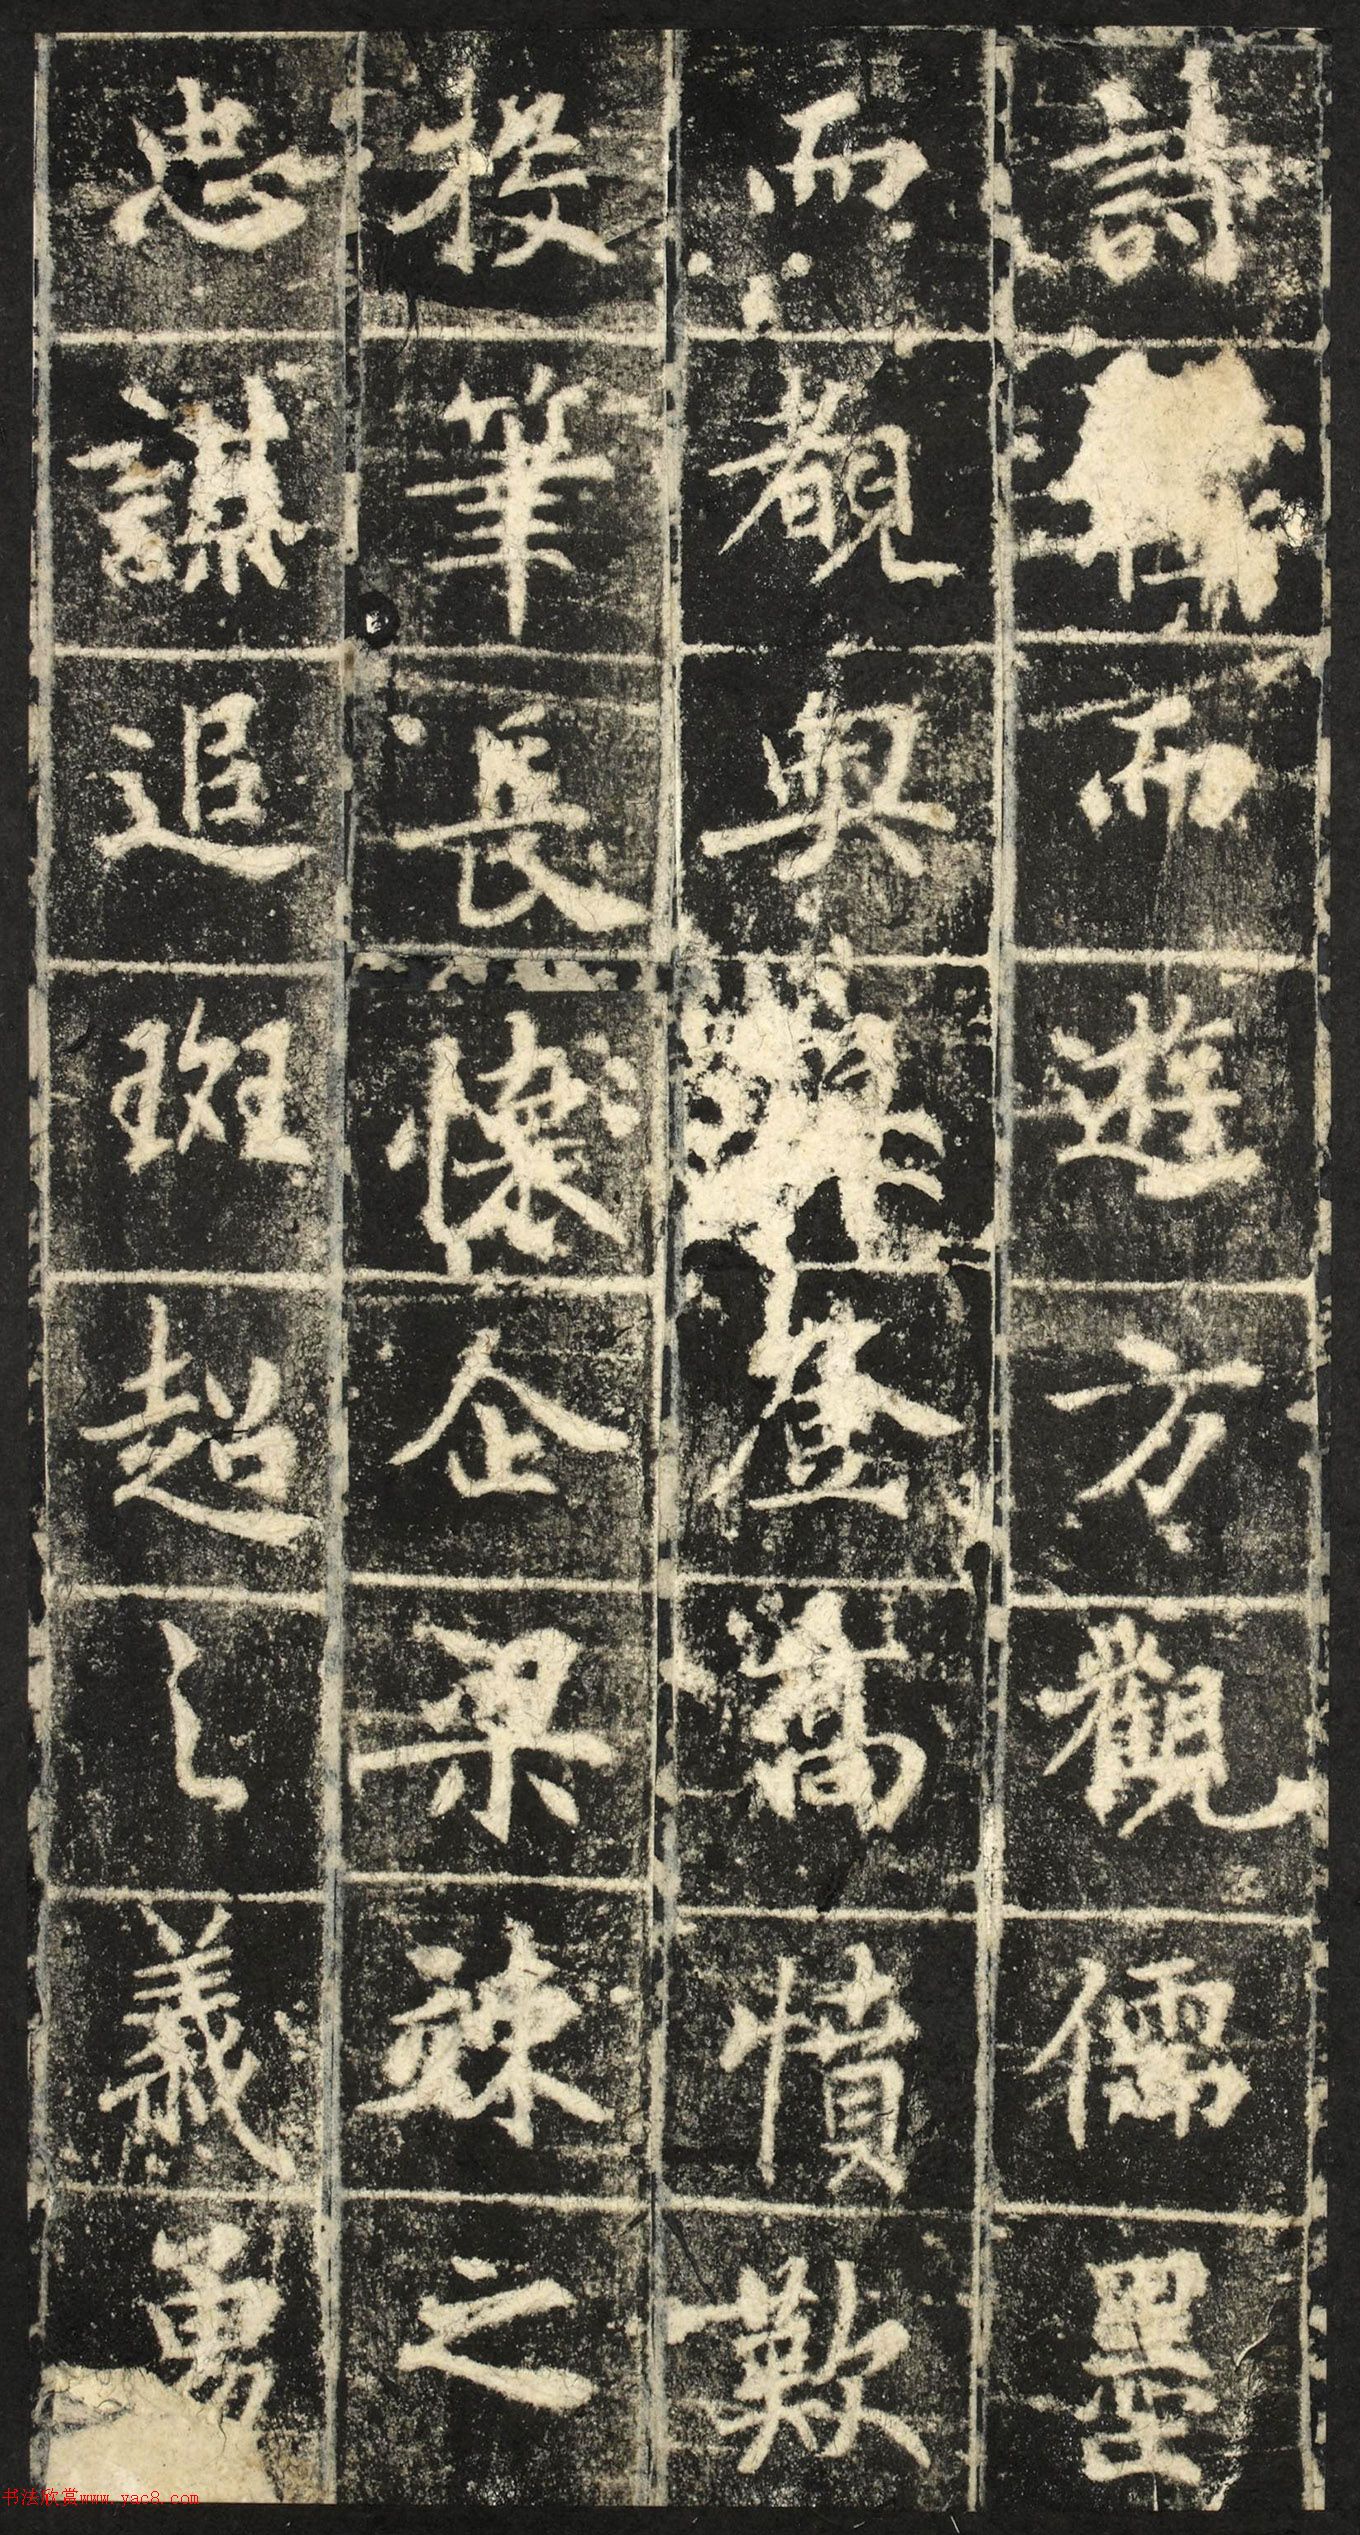 詩而遊方觀儒墨
而覩奧登高憤歎
投筆長懷企梁竦之
忠謀追班超之義勇
书法欣赏www.yac8.com